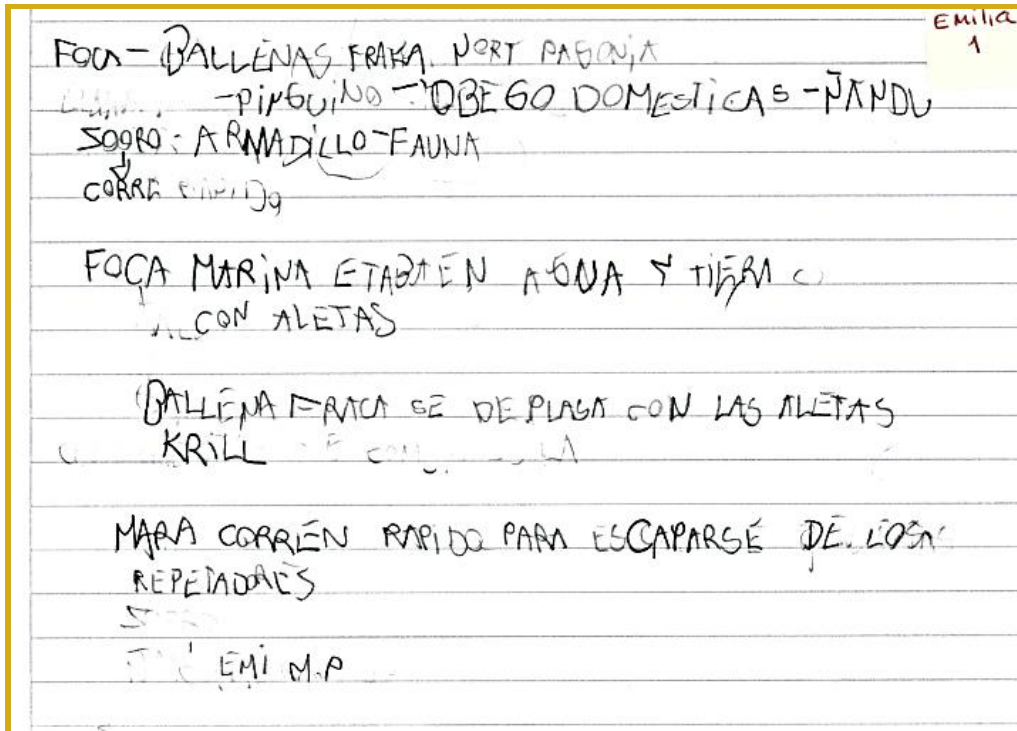 EMilia
1
FOCA - BALLENAS FRAKA. NORT PAGONiA
- PiNGUiNO - OBEGO DOMESTiCAS - ÑANDU
SOGRO: ARMADiLLO - FAUNA
CORRE
FOCA MARiNA ETABA EN AGUA Y TiERA
CON ALETAS
BALLENA FRACA SE DEPLASA CON LAS ALETAS
KRiLL
MARA CORREN RAPiDO PARA ESCAPARSE DE LOS
REPETADORES
EMi M.P